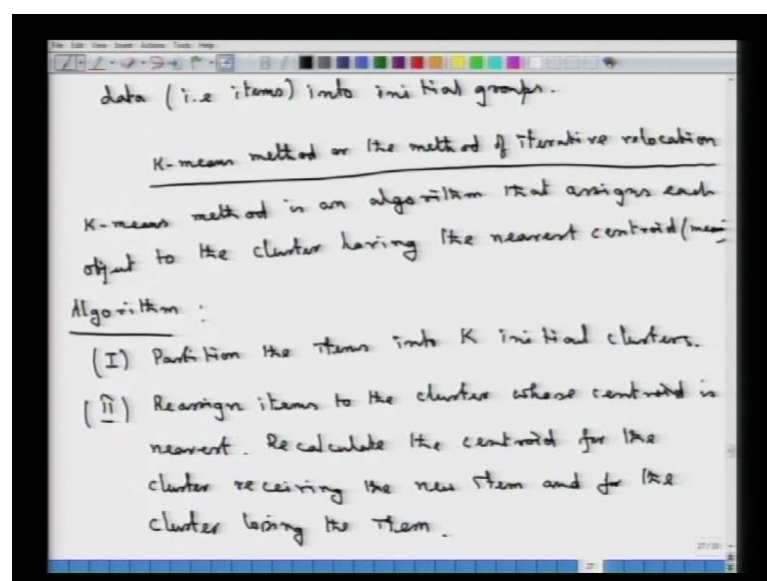 File Edit View Insert Actions Tools Help
data (i.e items) into initial groups.
K-means method or the method of iterative relocation
K-means method is an algorithm that assigns each
object to the cluster having the nearest centroid (mean)
Algorithm :
(I) Partition the items into K initial clusters.
(II) Reassign items to the cluster whose centroid is
nearest. Recalculate the centroid for the
cluster receiving the new item and for the
cluster losing the item.
27